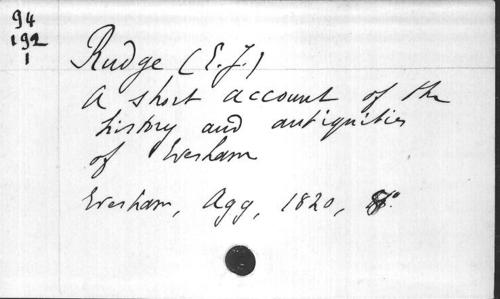 94
192
1
Rudge (E. J.)
A short account of the
history and antiquities
of Evesham
Evesham, Agg, 1820, 8°.